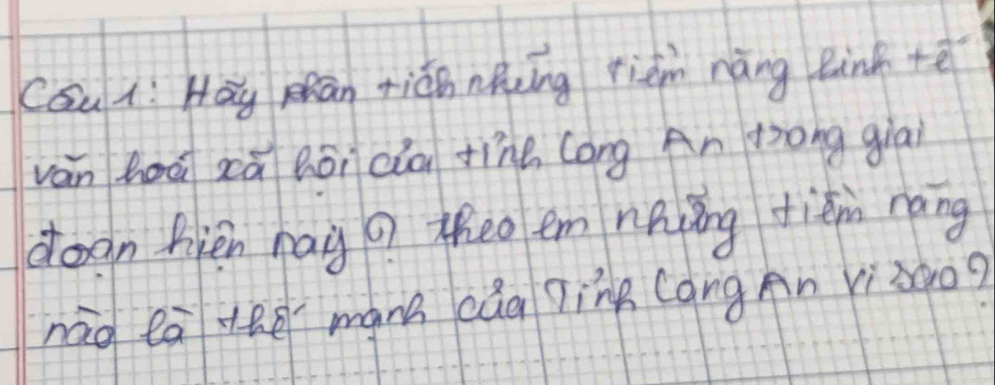 Câu 1: Hãy phân tích những tiềm năng kinh tế
văn hoá xã hội của tỉnh Long An trong giai
đoạn hiện nay? theo em những tiềm năng
nào là thế mạnh của Tỉnh Long An vì sao?